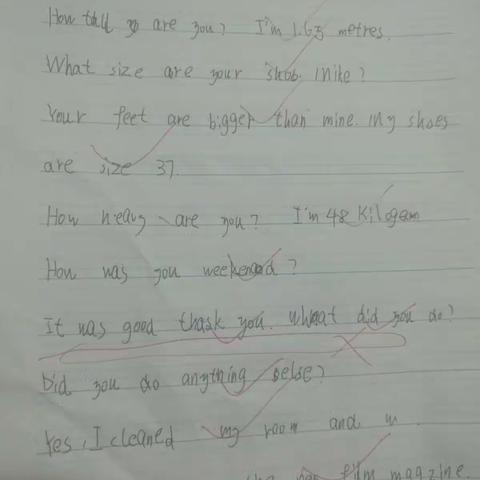 How tall are you? I'm 1.65 metres.
What size are your shob. Mike?
Your feet are bigger than mine. My shoes
are size 37.
How heavy are you? I'm 48 Kilogam
How was you weekend?
It was good thask you. What did you do?
Did you do anything else?
Yes, I cleaned my room and w
the film magazine.